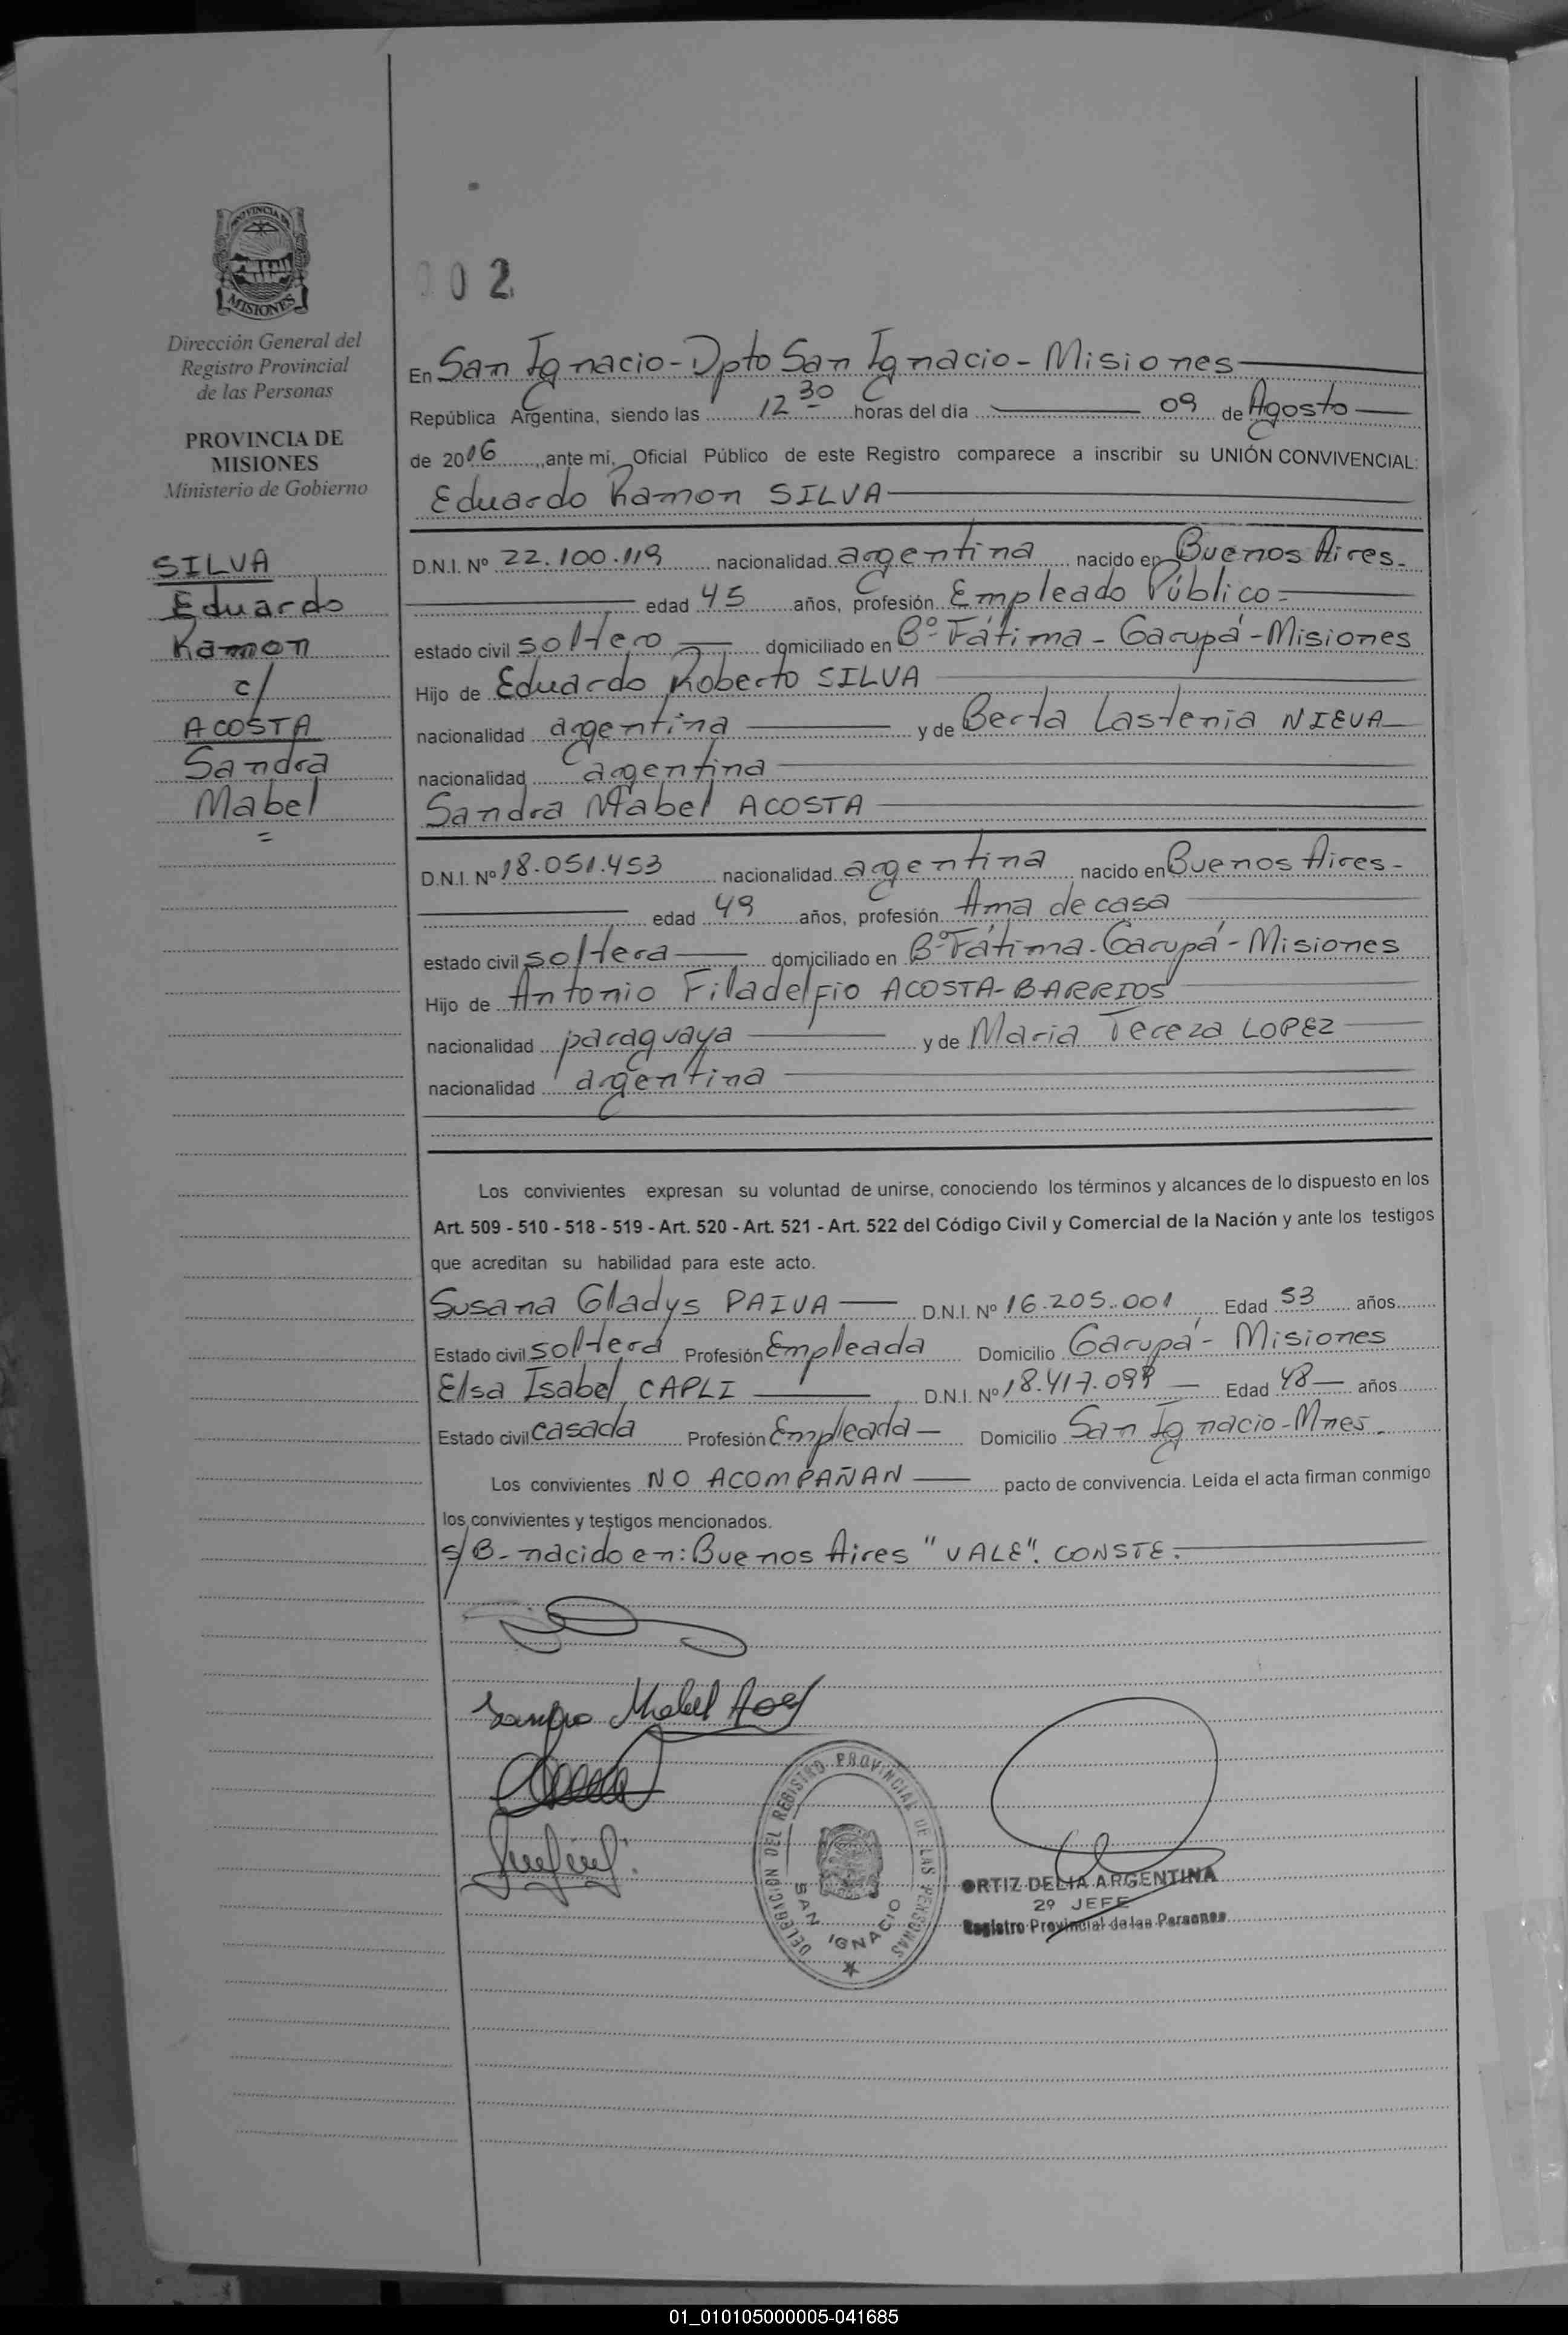 PROVINCIA DE
MISIONES
Dirección General del
Registro Provincial
de las Personas
PROVINCIA DE
MISIONES
Ministerio de Gobierno
SILVA
Eduardo
Ramon
c/
ACOSTA
Sandra
Mabel
=
002
En San Ignacio - Dpto San Ignacio - Misiones
República Argentina, siendo las 12 30 horas del día 09 de Agosto
de 2016, ante mi, Oficial Público de este Registro comparece a inscribir su UNIÓN CONVIVENCIAL:
Eduardo Ramon SILVA
D.N.I. Nº 22.100.119 nacionalidad argentina nacido en Buenos Aires.
edad 45 años, profesión Empleado Público
estado civil soltero domiciliado en Bº Fátima - Garupá - Misiones
Hijo de Eduardo Roberto SILVA
nacionalidad argentina y de Berta Lastenia NIEVA
nacionalidad argentina
Sandra Mabel ACOSTA
D.N.I. Nº 18.051.453 nacionalidad argentina nacido en Buenos Aires -
edad 49 años, profesión Ama de casa
estado civil soltera domiciliado en Bº Fátima - Garupá - Misiones
Hijo de Antonio Filadelfio ACOSTA - BARRIOS
nacionalidad paraguaya y de Maria Tereza LOPEZ
nacionalidad argentina
Los convivientes expresan su voluntad de unirse, conociendo los términos y alcances de lo dispuesto en los
Art. 509 - 510 - 518 - 519 - Art. 520 - Art. 521 - Art. 522 del Código Civil y Comercial de la Nación y ante los testigos
que acreditan su habilidad para este acto.
Susana Gladys PAIVA D.N.I. Nº 16.205.001 Edad 53 años
Estado civil soltera Profesión Empleada Domicilio Garupá - Misiones
Elsa Isabel CAPLI D.N.I. Nº 18.417.099 Edad 48 años
Estado civil casada Profesión Empleada Domicilio San Ignacio - Mnes.
Los convivientes NO ACOMPAÑAN pacto de convivencia. Leída el acta firman conmigo
los convivientes y testigos mencionados.
S/B - nacido en: Buenos Aires "VALE". CONSTE.
Sandra Mabel
DELEGACION DEL REGISTRO PROVINCIAL DE LAS PERSONAS
SAN IGNACIO
ORTIZ DELIA ARGENTINA
2º JEFE
Registro Provincial de las Personas
01_010105000005-041685